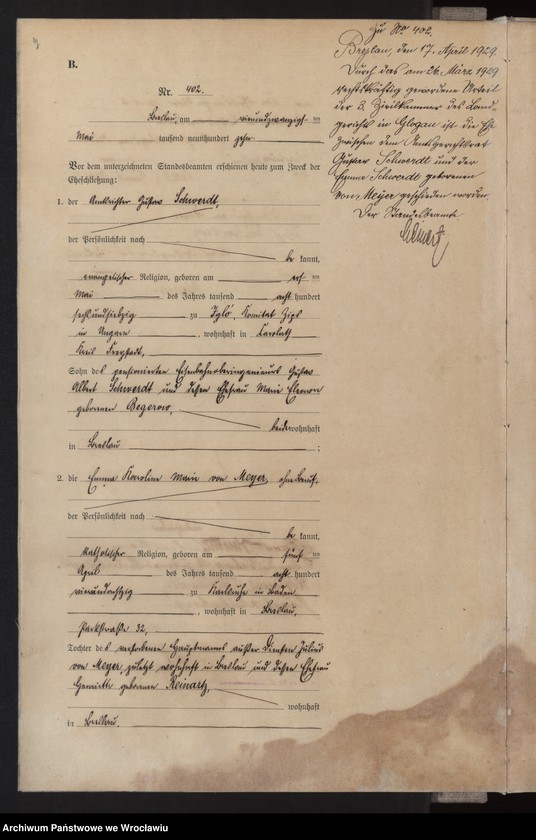 B.
Nr. 402.
Breslau, am vierundzwanzigsten
Mai tausend neunhundert zehn
Vor dem unterzeichneten Standesbeamten erschienen heute zum Zweck der
Eheschließung:
1. der Amtsrichter Gustav Schwerdt,
der Persönlichkeit nach
be kannt,
evangelischer Religion, geboren am ersten
Mai des Jahres tausend acht hundert
sechsundsiebzig zu Igló, Komitat Zips
in Ungarn, wohnhaft in Carolath
Kreis Freystadt,
Sohn des pensionierten Eisenbahnoberingenieurs Gustav
Albert Schwerdt und dessen Ehefrau Marie Eleonore
geborenen Begerow,
beide wohnhaft
in Breslau;
2. die Emma Karoline Marie von Meyer, ohne Beruf,
der Persönlichkeit nach
be kannt,
katholischer Religion, geboren am fünften
April des Jahres tausend acht hundert
vierundachtzig zu Karlsruhe in Baden
, wohnhaft in Breslau,
Parkstraße 32,
Tochter des verstorbenen Hauptmanns außer Diensten Julius
von Meyer, zuletzt wohnhaft in Breslau und dessen Ehefrau
Henriette geborenen Reinartz,
wohnhaft
in Breslau.
Zu No 402.
Breslau, den 17. April 1929.
Durch das am 26. März 1929
rechtskräftig gewordene Urteil
der 3. Zivilkammer des Land-
gerichts in Glogau ist die Ehe
zwischen dem Amtsgerichtsrat
Gustav Schwerdt und der
Emma Schwerdt geborenen
von Meyer geschieden worden.
Der Standesbeamte
Archiwum Państwowe we Wrocławiu